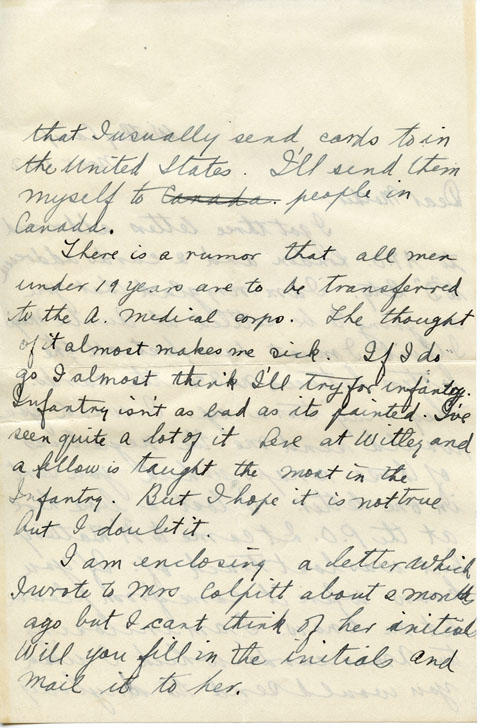 that I usually send cards to in
the United States. I'll send them
myself to Canada. people in
Canada.
There is a rumor that all men
under 19 years are to be transferred
to the A. Medical corps. The thought
of it almost makes me sick. If I do
go I almost think I'll try for infantry.
Infantry isn't as bad as its painted. I've
seen quite a lot of it here at Witley and
a fellow is taught the most in the
Infantry. But I hope it is not true
but I doubt it.
I am enclosing a letter which
I wrote to Mrs Colpitt about a month
ago but I cant think of her initial
Will you fill in the initials and
mail it to her.